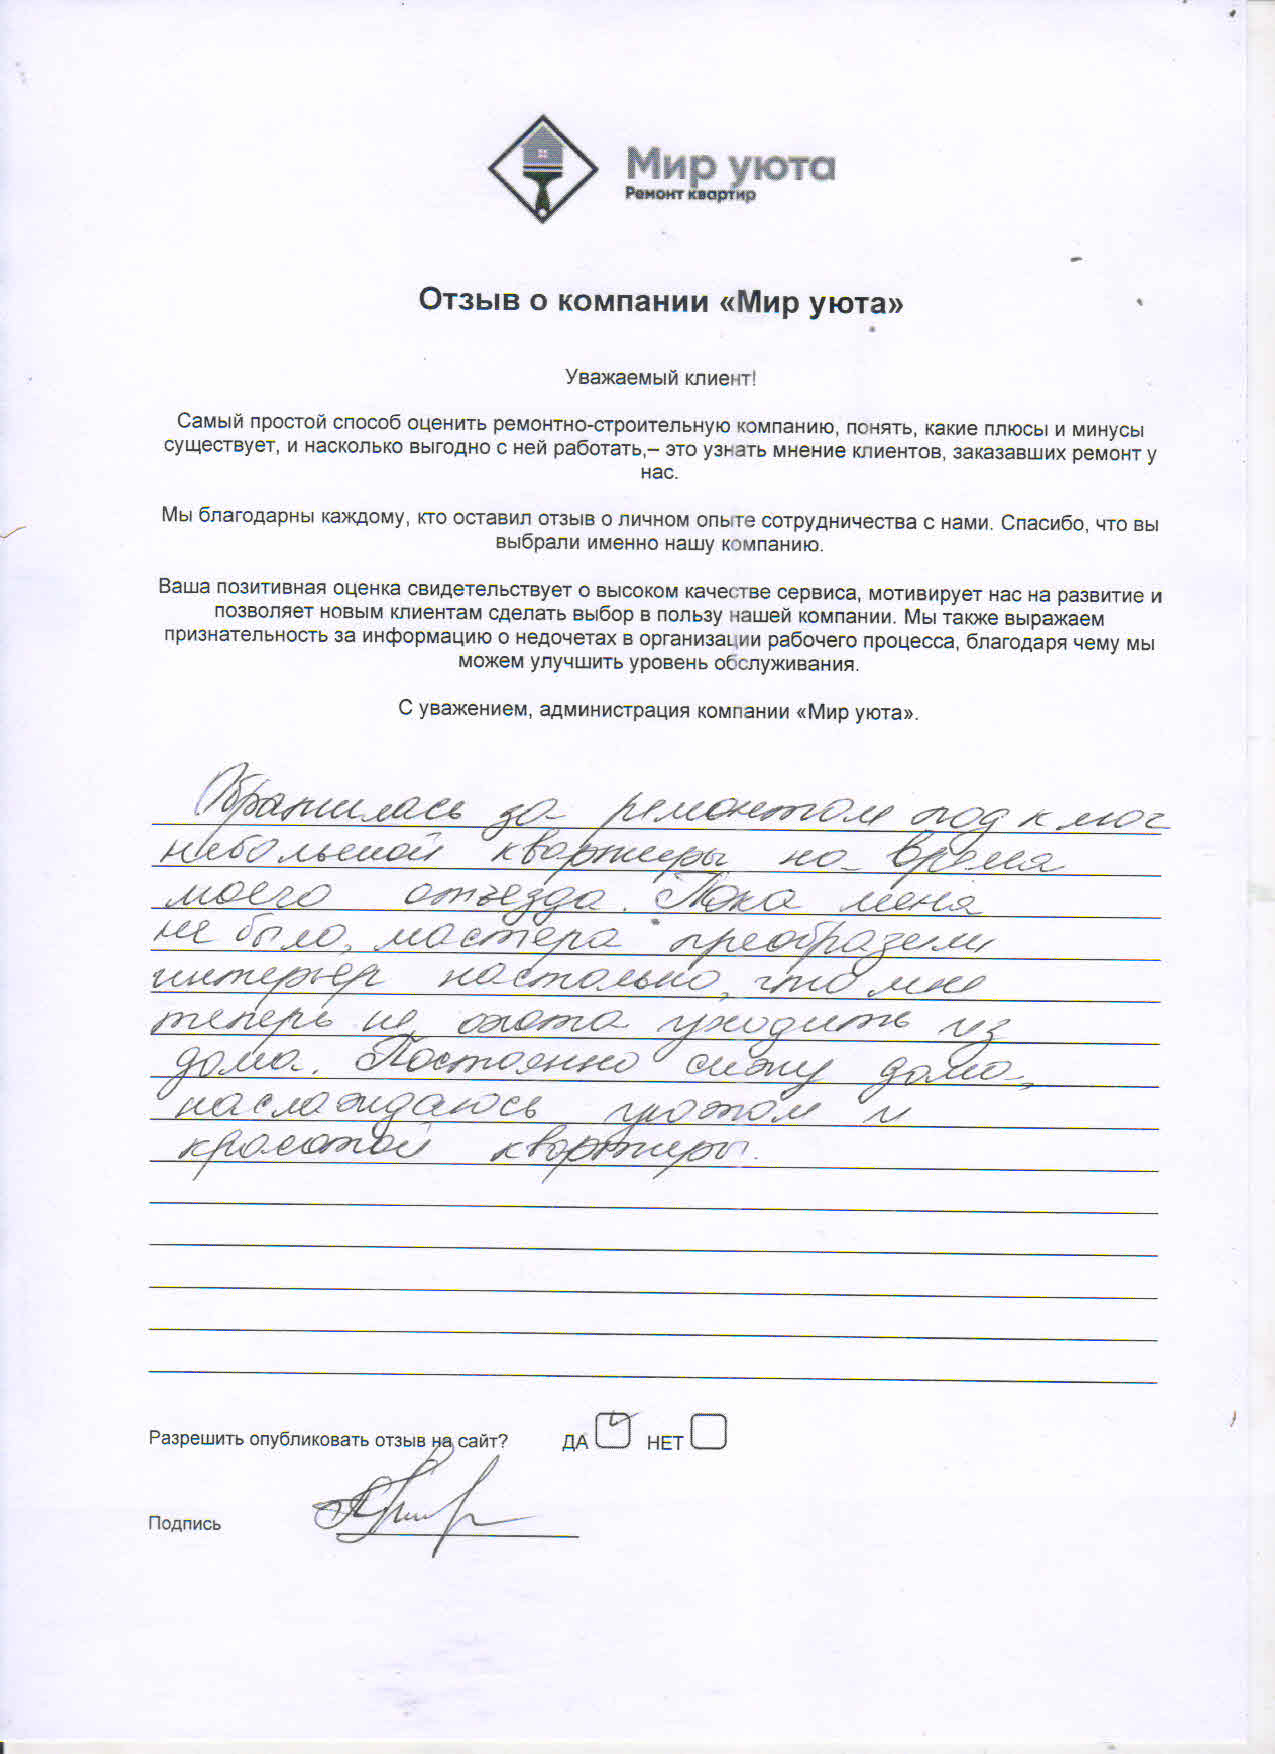 Мир уюта
Ремонт квартир
Отзыв о компании «Мир уюта»
Уважаемый клиент!
Самый простой способ оценить ремонтно-строительную компанию, понять, какие плюсы и минусы
существует, и насколько выгодно с ней работать,– это узнать мнение клиентов, заказавших ремонт у
нас.
Мы благодарны каждому, кто оставил отзыв о личном опыте сотрудничества с нами. Спасибо, что вы
выбрали именно нашу компанию.
Ваша позитивная оценка свидетельствует о высоком качестве сервиса, мотивирует нас на развитие и
позволяет новым клиентам сделать выбор в пользу нашей компании. Мы также выражаем
признательность за информацию о недочетах в организации рабочего процесса, благодаря чему мы
можем улучшить уровень обслуживания.
С уважением, администрация компании «Мир уюта».
Обратилась за ремонтом под ключ
небольшой квартиры на время
моего отъезда. Пока меня
не было, мастера преобразили
интерьер настолько, что мне
теперь не охота уходить из
дома. Постоянно сижу дома,
наслаждаюсь уютом и
красотой квартиры.
Разрешить опубликовать отзыв на сайт? ДА НЕТ
Подпись